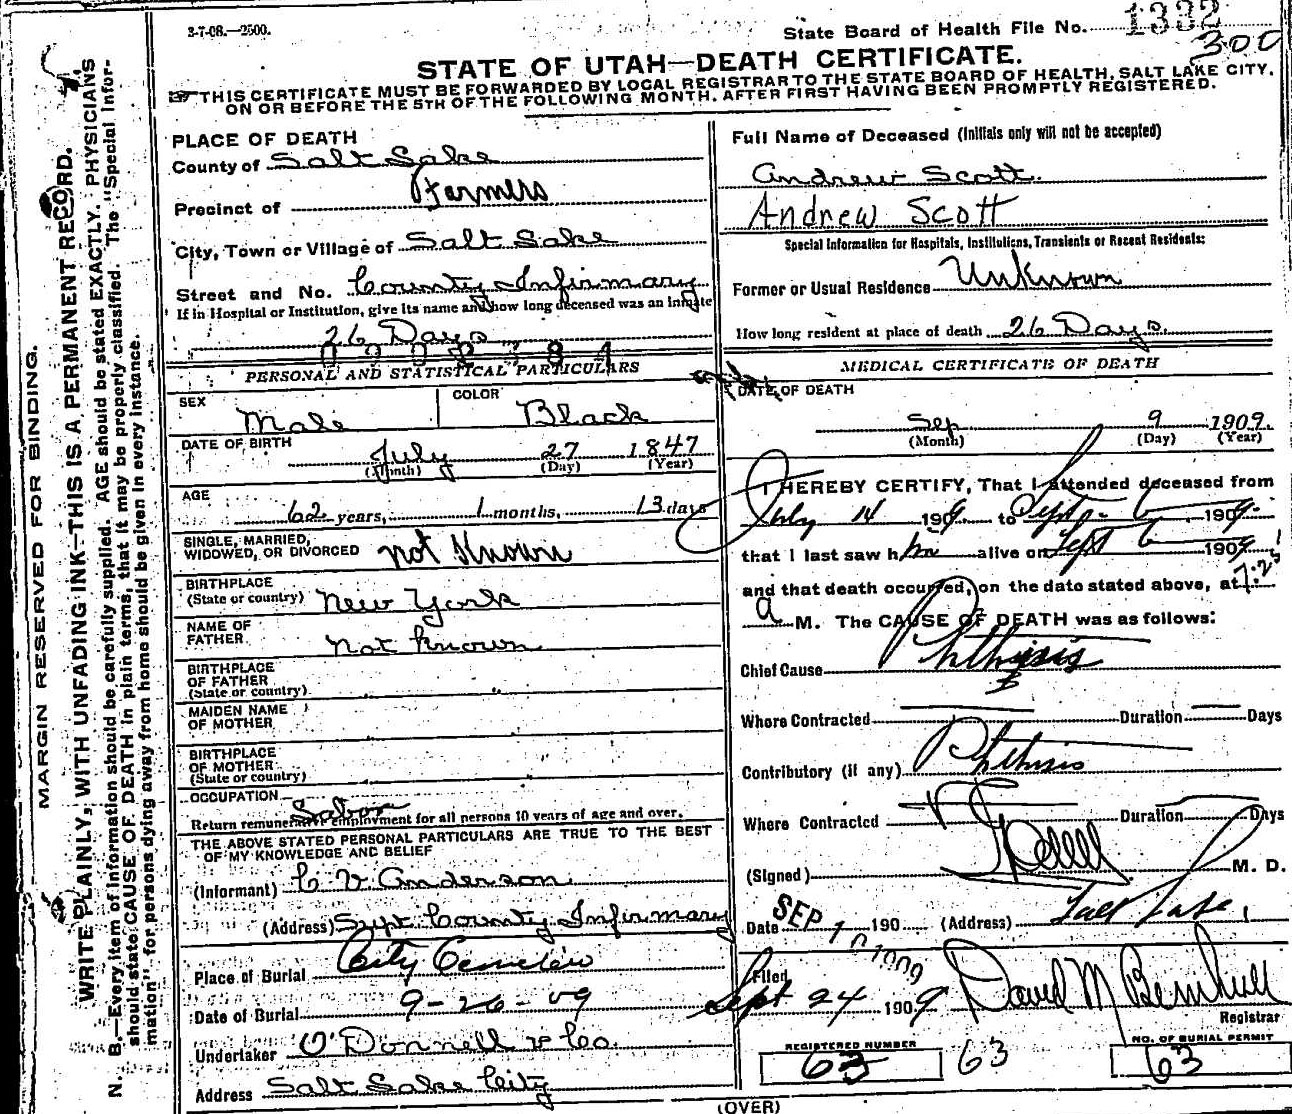 3-7-08.—2500.
State Board of Health File No. 1332
300
STATE OF UTAH—DEATH CERTIFICATE.
THIS CERTIFICATE MUST BE FORWARDED BY LOCAL REGISTRAR TO THE STATE BOARD OF HEALTH, SALT LAKE CITY,
ON OR BEFORE THE 5TH OF THE FOLLOWING MONTH, AFTER FIRST HAVING BEEN PROMPTLY REGISTERED.
MARGIN RESERVED FOR BINDING.
WRITE PLAINLY, WITH UNFADING INK—THIS IS A PERMANENT RECORD.
N. B.—Every item of information should be carefully supplied. AGE should be stated EXACTLY. PHYSICIANS
should state CAUSE OF DEATH in plain terms, that it may be properly classified. The "Special Infor-
mation" for persons dying away from home should be given in every instance.
PLACE OF DEATH
County of Salt Lake
Precinct of Farmers
City, Town or Village of Salt Lake
Street and No. County Infirmary
If in Hospital or Institution, give its name and how long deceased was an inmate
26 Days
PERSONAL AND STATISTICAL PARTICULARS
SEX Male
COLOR Black
DATE OF BIRTH
July 27 1847
(Month) (Day) (Year)
AGE
62 years, 1 months, 13 days
SINGLE, MARRIED,
WIDOWED, OR DIVORCED not known
BIRTHPLACE
(State or country) New York
NAME OF
FATHER not known
BIRTHPLACE
OF FATHER
(State or country) " "
MAIDEN NAME
OF MOTHER
BIRTHPLACE
OF MOTHER
(State or country)
OCCUPATION Labor
Return remunerative employment for all persons 10 years of age and over.
THE ABOVE STATED PERSONAL PARTICULARS ARE TRUE TO THE BEST
OF MY KNOWLEDGE AND BELIEF
(Informant) C V Anderson
(Address) Supt County Infirmary
Place of Burial City Cemetery
Date of Burial 9-26-09
Undertaker O'Donnell & Co.
Address Salt Lake City
Full Name of Deceased (Initials only will not be accepted)
Andrew Scott.
Andrew Scott
Special Information for Hospitals, Institutions, Transients or Recent Residents:
Former or Usual Residence Unknown
How long resident at place of death 26 Days.
MEDICAL CERTIFICATE OF DEATH
DATE OF DEATH
Sep 9 1909.
(Month) (Day) (Year)
I HEREBY CERTIFY, That I attended deceased from
July 14 1909 to Sept 6 1909
that I last saw him alive on Sept 6 1909,
and that death occurred, on the date stated above, at
a M. The CAUSE OF DEATH was as follows:
Chief Cause Phthisis
Where Contracted Duration Days
Contributory (if any) Phthisis
Where Contracted Duration Days
(Signed) M. D.
Date SEP 10 1909 190 (Address) Salt Lake,
Filed
Sept 24 1909 David M
Registrar
REGISTERED NUMBER
63
63
NO. OF BURIAL PERMIT
63
(OVER)